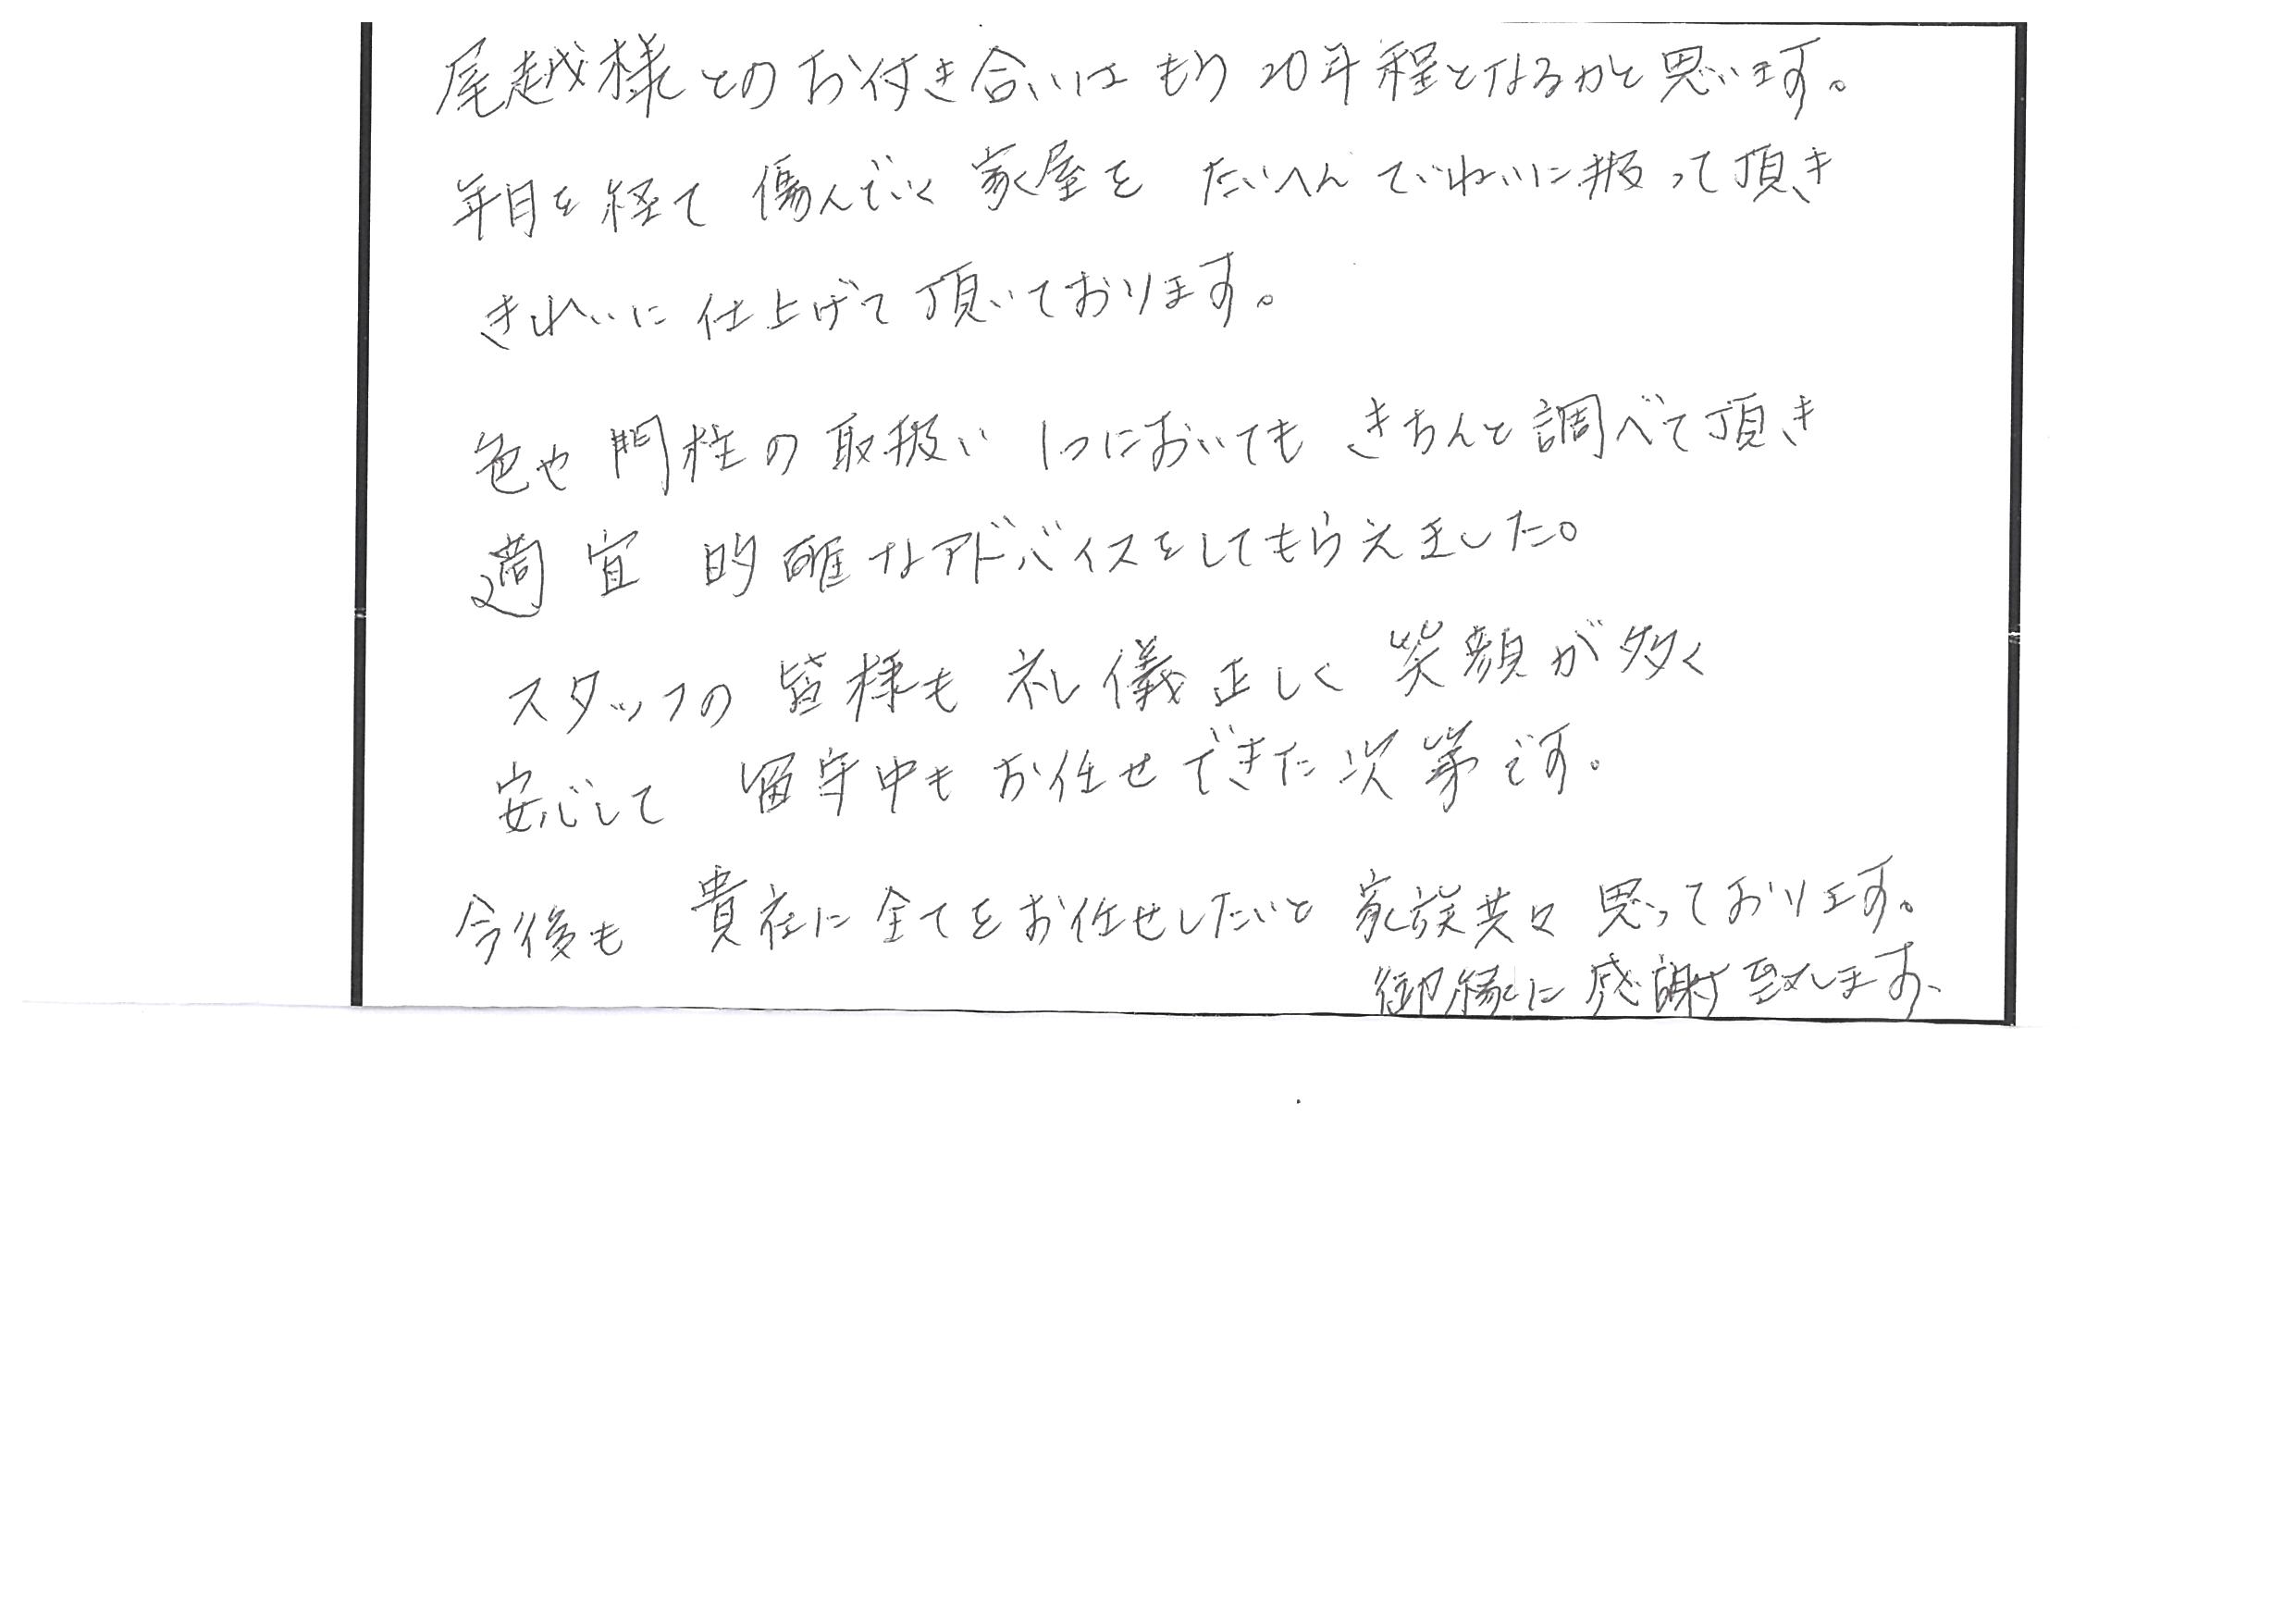 尾越様とのお付き合いはもう20年程となるかと思います。
年月を経て 傷んでいく 家屋を たいへん ていねいに扱って頂き
きれいに 仕上げて 頂いております。
色や 門柱の 取扱い 1つにおいても きちんと調べて頂き
適宜 的確なアドバイスをしてもらえました。
スタッフの 皆様も 礼儀正しく 笑顔が多く
安心して 留守中も お任せできた次第です。
今後も 貴社に全てをお任せしたいと 家族共々 思っております。
御縁に感謝致します、